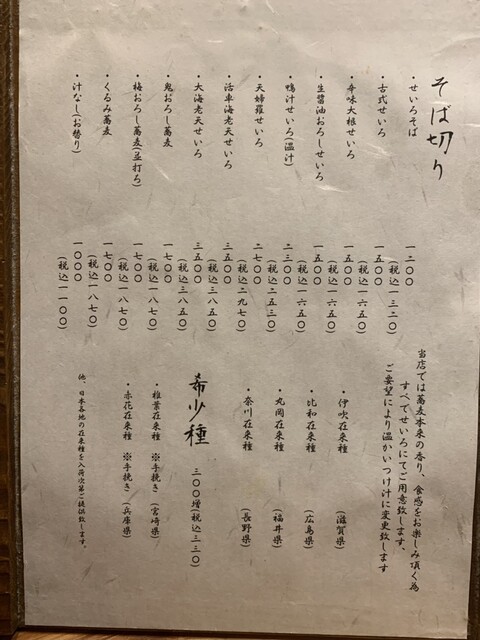 そば切り
・せいろそば 一二〇〇
(税込一三二〇)
・古式せいろ 一五〇〇
(税込一六五〇)
・辛味大根せいろ 一五〇〇
(税込一六五〇)
・生醤油おろしせいろ 一五〇〇
(税込一六五〇)
・鴨汁せいろ(温汁) 二三〇〇
(税込二五三〇)
・天婦羅せいろ 二七〇〇
(税込二九七〇)
・活車海老天せいろ 三五〇〇
(税込三八五〇)
・大海老天せいろ 三五〇〇
(税込三八五〇)
・鬼おろし蕎麦 一七〇〇
(税込一八七〇)
・梅おろし蕎麦(並打ち) 一七〇〇
(税込一八七〇)
・くるみ蕎麦 一七〇〇
(税込一八七〇)
・汁なし(お替り) 一〇〇〇
(税込一一〇〇)
当店では蕎麦本来の香り、食感をお楽しみ頂く為
すべてせいろにてご用意致します。
ご要望により温かいつけ汁に変更致します
・伊吹在来種 (滋賀県)
・比和在来種 (広島県)
・丸岡在来種 (福井県)
・奈川在来種 (長野県)
希少種 三〇〇増税込三三〇)
・椎葉在来種 ※手挽き (宮崎県)
・赤花在来種 ※手挽き (兵庫県)
他、日本各地の在来種を入荷次第ご提供致します。